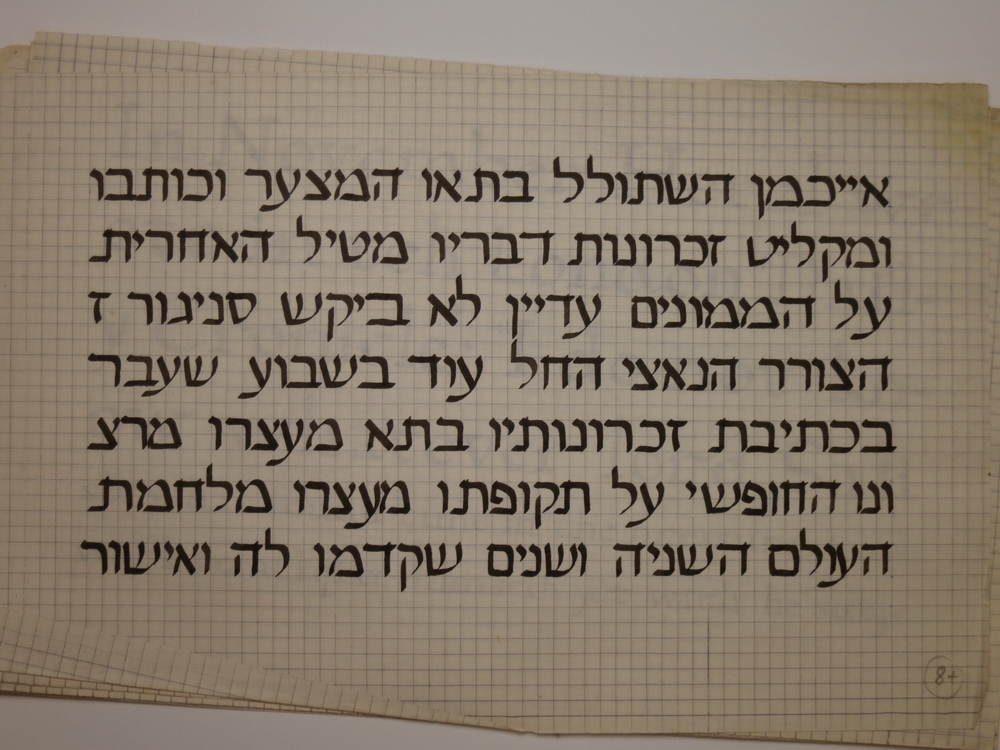 אייכמן השתולל בתאו המצער וכותבו
ומקליט זכרונות דבריו מטיל האחרית
על הממונים עדיין לא ביקש סניגור ז
הצורר הנאצי החל עוד בשבוע שעבר
בכתיבת זכרונותיו בתא מעצרו מרצ
ונו החופשי על תקופתו מעצרו מלחמת
העולם השניה ושנים שקדמו לה ואישור
8+